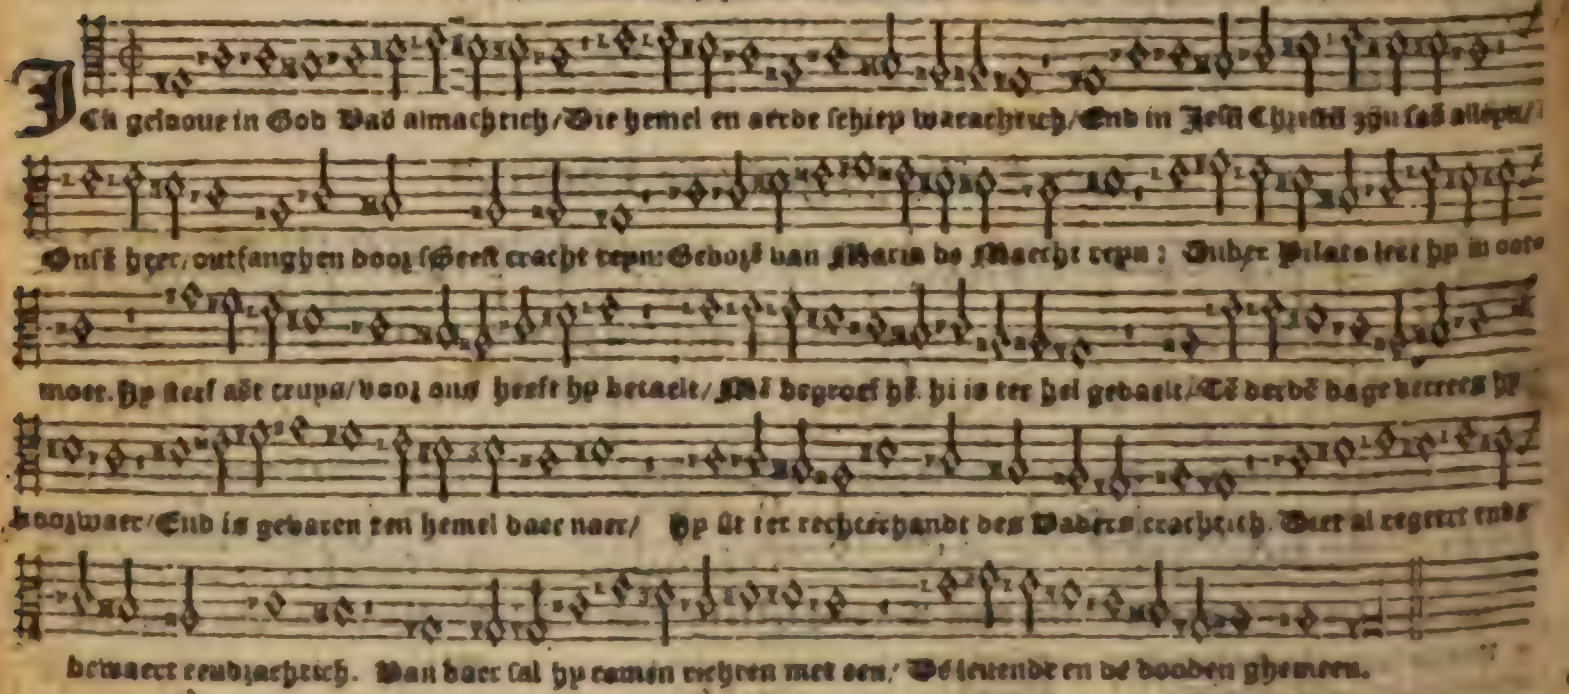 ICk geloove in God Vad almachtich/Die hemel en aerde schiep warachtich/End in Jesū Christū zijn sαδ alleyn/
Onsē heer, ontfanghen door sGeest cracht reyn: Geborē van Maria de Maecht reyn: Onder Pilato leet hy in oot-
moet. Hy sterf aēt cruys/voor ons heeft hy betaelt/Mē begroef hē. hi is ter hel gedaelt, Tē derdē dage verrees hy
voorwaer/End is gevaren ten hemel daer naer/ Hy sit ter rechterhandt des Vaders crachtich. Diet al regeert ende
bewaert eendrachtich. Van daer sal hy comen richten met een/ De levende en de dooden ghemeen.